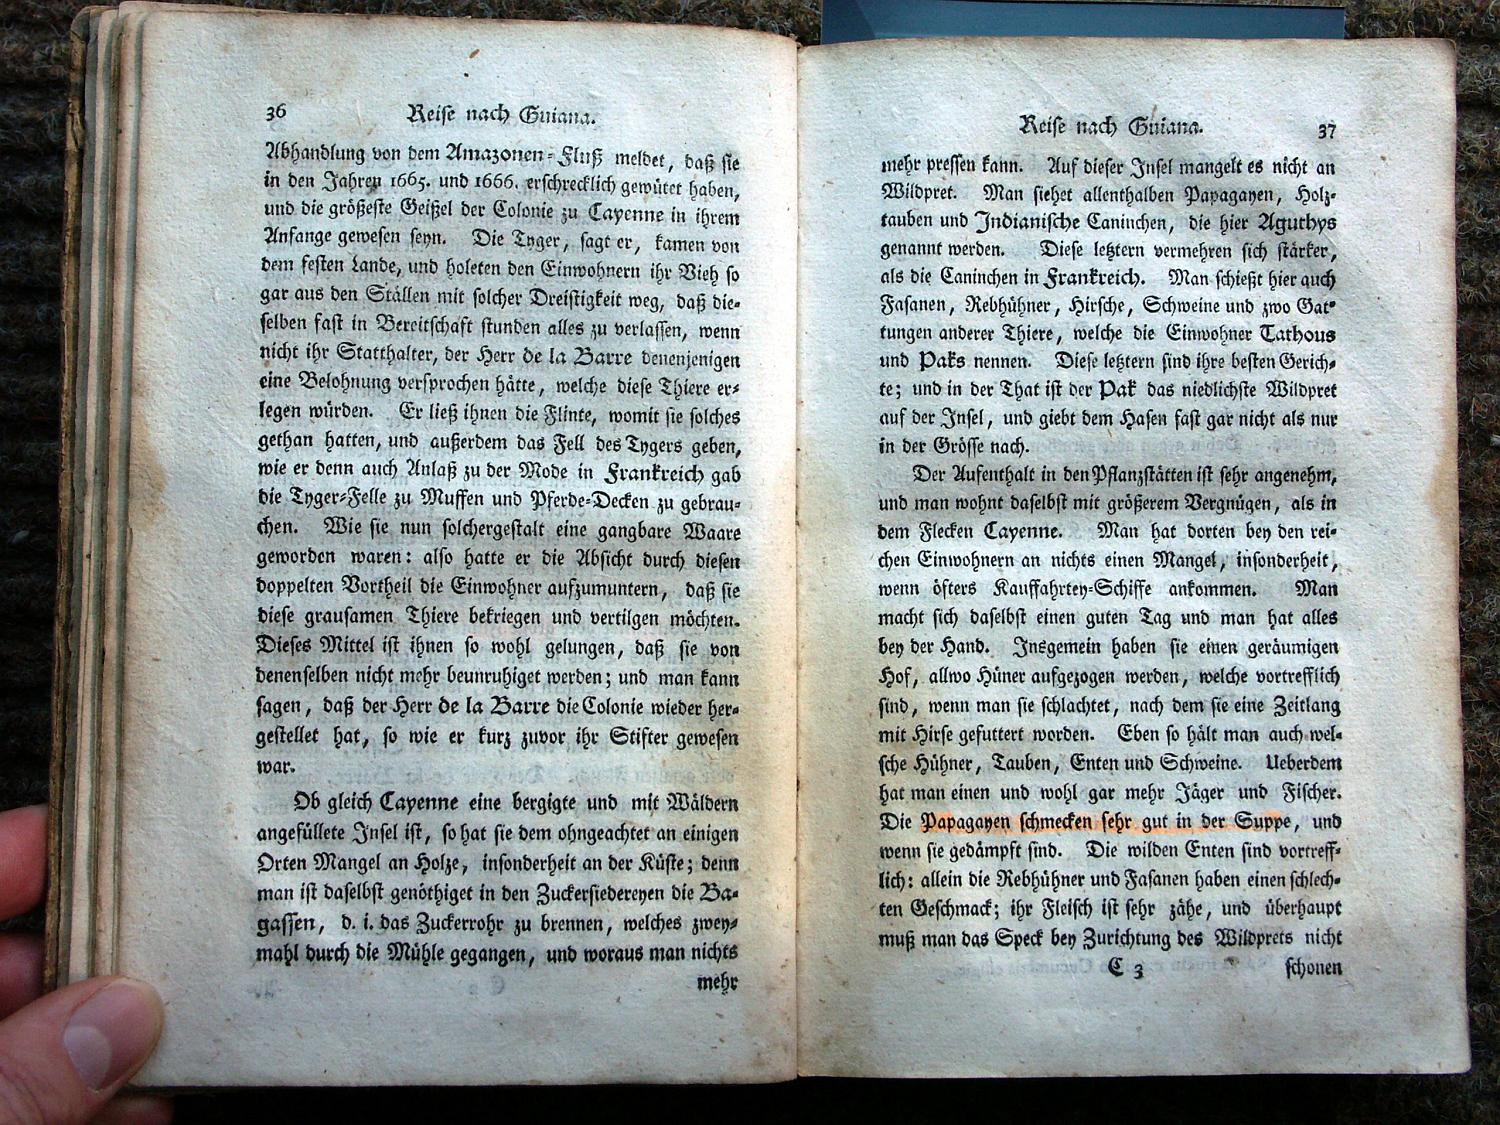 36 Reise nach Guiana.
Abhandlung von dem Amazonen-Fluß meldet, daß sie
in den Jahren 1665. und 1666. erschrecklich gewütet haben,
und die größeste Geißel der Colonie zu Cayenne in ihrem
Anfange gewesen seyn. Die Tyger, sagt er, kamen von
dem festen Lande, und holeten den Einwohnern ihr Vieh so
gar aus den Ställen mit solcher Dreistigkeit weg, daß die-
selben fast in Bereitschaft stunden alles zu verlassen, wenn
nicht ihr Statthalter, der Herr de la Barre denenjenigen
eine Belohnung versprochen hätte, welche diese Thiere er-
legen würden. Er ließ ihnen die Flinte, womit sie solches
gethan hatten, und außerdem das Fell des Tygers geben,
wie er denn auch Anlaß zu der Mode in Frankreich gab
die Tyger-Felle zu Muffen und Pferde-Decken zu gebrau-
chen. Wie sie nun solchergestalt eine gangbare Waare
geworden waren: also hatte er die Absicht durch diesen
doppelten Vortheil die Einwohner aufzumuntern, daß sie
diese grausamen Thiere bekriegen und vertilgen möchten.
Dieses Mittel ist ihnen so wohl gelungen, daß sie von
denenselben nicht mehr beunruhiget werden; und man kann
sagen, daß der Herr de la Barre die Colonie wieder her-
gestellet hat, so wie er kurz zuvor ihr Stifter gewesen
war.
Ob gleich Cayenne eine bergigte und mit Wäldern
angefüllete Insel ist, so hat sie dem ohngeachtet an einigen
Orten Mangel an Holze, insonderheit an der Küste; denn
man ist daselbst genöthiget in den Zuckersiedereyen die Ba-
gassen, d. i. das Zuckerrohr zu brennen, welches zwey-
mahl durch die Mühle gegangen, und woraus man nichts
mehr
Reise nach Guiana. 37
mehr pressen kann. Auf dieser Insel mangelt es nicht an
Wildpret. Man siehet allenthalben Papagayen, Holz-
tauben und Indianische Caninchen, die hier Aguthys
genannt werden. Diese letztern vermehren sich stärker,
als die Caninchen in Frankreich. Man schießt hier auch
Fasanen, Rebhühner, Hirsche, Schweine und zwo Gat-
tungen anderer Thiere, welche die Einwohner Tathous
und Paks nennen. Diese letztern sind ihre besten Gerich-
te; und in der That ist der Pak das niedlichste Wildpret
auf der Insel, und giebt dem Hasen fast gar nicht als nur
in der Grösse nach.
Der Aufenthalt in den Pflanzstätten ist sehr angenehm,
und man wohnt daselbst mit größerem Vergnügen, als in
dem Flecken Cayenne. Man hat dorten bey den rei-
chen Einwohnern an nichts einen Mangel, insonderheit,
wenn öfters Kauffahrtey-Schiffe ankommen. Man
macht sich daselbst einen guten Tag und man hat alles
bey der Hand. Insgemein haben sie einen geräumigen
Hof, allwo Hüner aufgezogen werden, welche vortrefflich
sind, wenn man sie schlachtet, nach dem sie eine Zeitlang
mit Hirse gefuttert worden. Eben so hält man auch wel-
sche Hühner, Tauben, Enten und Schweine. Ueberdem
hat man einen und wohl gar mehr Jäger und Fischer.
Die Papagayen schmecken sehr gut in der Suppe, und
wenn sie gedämpft sind. Die wilden Enten sind vortreff-
lich: allein die Rebhühner und Fasanen haben einen schlech-
ten Geschmack; ihr Fleisch ist sehr zähe, und überhaupt
muß man das Speck bey Zurichtung des Wildprets nicht
C 3 schonen